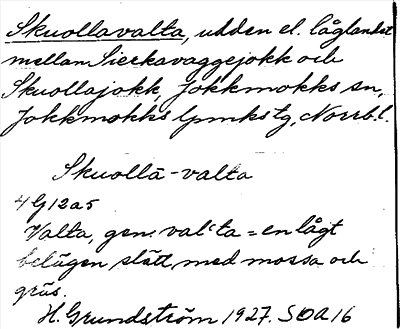 Skuollavalta, udden el. låglandet
mellan Sierkavaggejokk och
Skuollajokk, Jokkmokks sn,
Jokkmokks lpmks tg, Norrb. l.
Skuollā-valta
4G12a5
Valta, gen. val'ta = en lågt
belägen slätt med mossa och
gräs.
H. Grundström 1927. SOA 16